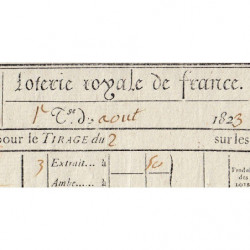 Loterie royale de france.
1er Tge. d'août 1823
pour le TIRAGE du 2 sur les
3 Extrait... à 50
Ambe.... à